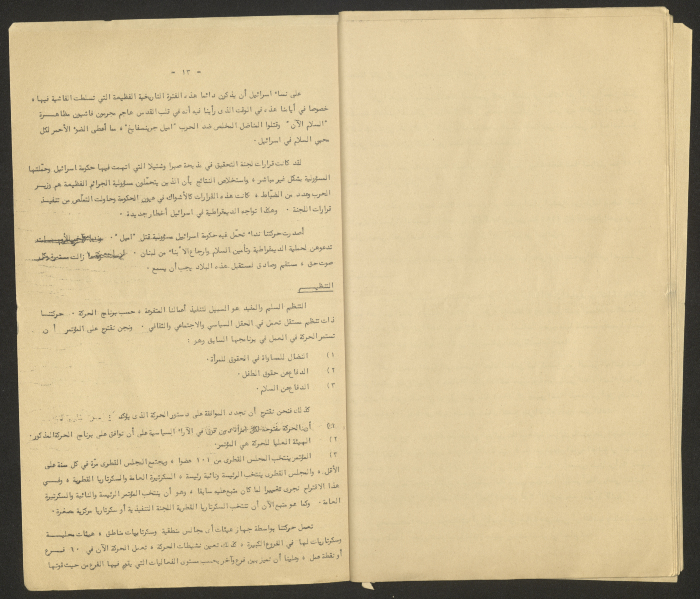 - ١٣ -
على نساء اسرائيل أن يذكرن دائما هذه الفترة التاريخية الفظيعة التي تسلطت الفاشية فيها ،
خصوصا في أيامنا هذه في الوقت الذي رأينا فيه أنه في قلب القدس هاجم مجرمون فاشيون مظاهرة
"السلام الآن" وقتلوا المناضل المخلص ضد الحرب "اميل جرينسفايغ" ، ما أعطى الضوء الأحمر لكل
محبي السلام في اسرائيل .
لقد كانت قرارات لجنة التحقيق في مذبحة صبرا وشتيلا التي اتهمت فيها حكومة اسرائيل وحملتها
المسؤولية بشكل غير مباشر ، واستخلاص النتائج بأن الذين يتحملون مسؤولية الجرائم الفظيعة هم وزير
الحرب وعدد من الضباط ، كانت هذه القرارات كالأشواك في عيون الحكومة وحاولت التملص من تنفيذ
قرارات اللجنة . وهكذا تواجه الديمقراطية في اسرائيل أخطار جديدة .
أصدرت حركتنا نداء تحمل فيه حكومة اسرائيل مسؤولية قتل "اميل" .
تدعوهن لحماية الديمقراطية وتأمين السلام وارجاع الأبناء من لبنان .
صوت حق ، مستقيم وصادق لمستقبل هذه البلاد يجب أن يسمع .
التنظيم
التنظيم السليم والمفيد هو السبيل لتنفيذ أعمالنا المتنوعة ، حسب برنامج الحركة . حركتنا
ذات تنظيم مستقل تعمل في الحقل السياسي والاجتماعي والثقافي . ونحن نقترح على المؤتمر أن
تستمر الحركة في العمل في برنامجها السابق وهو :
١) النضال للمساواة في الحقوق للمرأة .
٢) الدفاع عن حقوق الطفل .
٣) الدفاع عن السلام .
كذلك فنحن نقترح أن نجدد الموافقة على دستور الحركة الذي يؤكد
١) أن الحركة مفتوحة لكل امرأة السياسية على أن توافق على برنامج الحركة المذكور .
٢) الهيئة العليا للحركة هي المؤتمر .
٣) المؤتمر ينتخب المجلس القطري من ١٠١ عضوا ، ويجتمع المجلس القطري مرة في كل سنة على
الأقل ، والمجلس القطري ينتخب الرئيسة ونائبة رئيسة ، السكرتيرة العامة والسكرتاريا القطرية ، وفي
هذا الاقتراح نجري تغييرا لما كان متبع عليه سابقا ، وهو أن ينتخب المؤتمر الرئيسة والنائبة والسكرتيرة
العامة . وكما هو متبع الآن أن تنتخب السكرتاريا القطرية اللجنة التنفيذية أو سكرتاريا مركزية مصغرة .
تعمل حركتنا بواسطة جهاز هيئات أي مجالس منطقية وسكرتاريات مناطق ، هيئات محلية
وسكرتاريات لها في الفروع الكبيرة ، كذلك تعيين نشيطات الحركة ، تعمل الحركة الآن في ٦٠ فرع
أو نقطة عمل ، وعلينا أن نميز بين فرع وآخر بحسب مستوى الفعاليات التي يقوم فيها الفرع من حيث قوتها